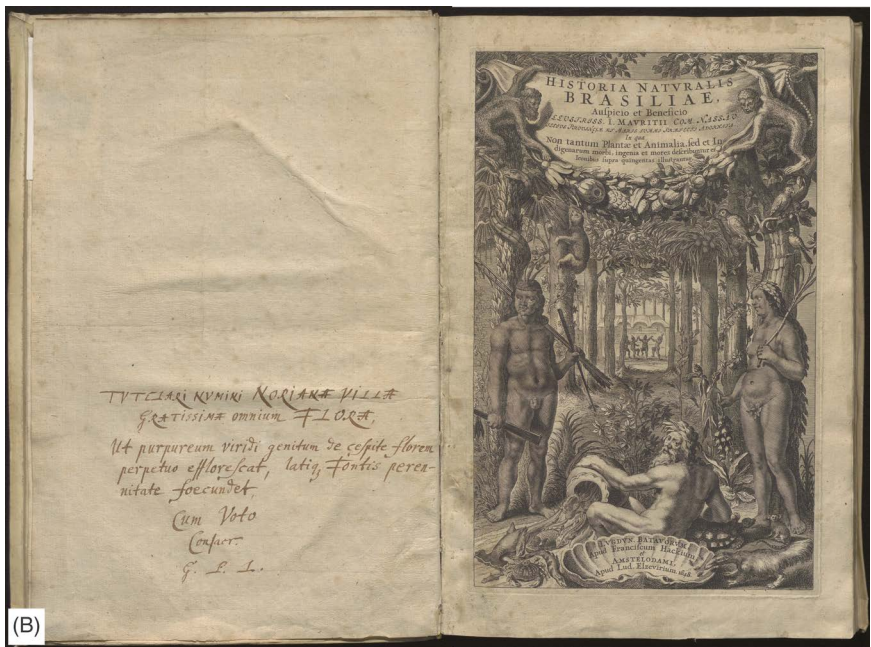 TVTELARI NVMINI NORIANÆ VILLÆ
GRATISSIMÆ omnium FLORÆ,
Ut purpureum viridi genitum de cespite florem
perpetuo efflorescat, latiq, Fontis peren-
nitate foecundet,
Cum Voto
Consacr.
G. P. L.
HISTORIA NATVRALIS
BRASILIAE,
Auspicio et Beneficio
ILLUSTRISS. I. MAVRITII COM. NASSAV
In qua
Non tantum Plantæ et Animalia, sed et In-
digenarum morbi, ingenia et mores describuntur et
Iconibus supra quingentas illustrantur.
LVGDVN. BATAVORVM,
Apud Franciscum Hackium,
et
AMSTELODAMI,
Apud Lud. Elzevirium. 1648.
(B)